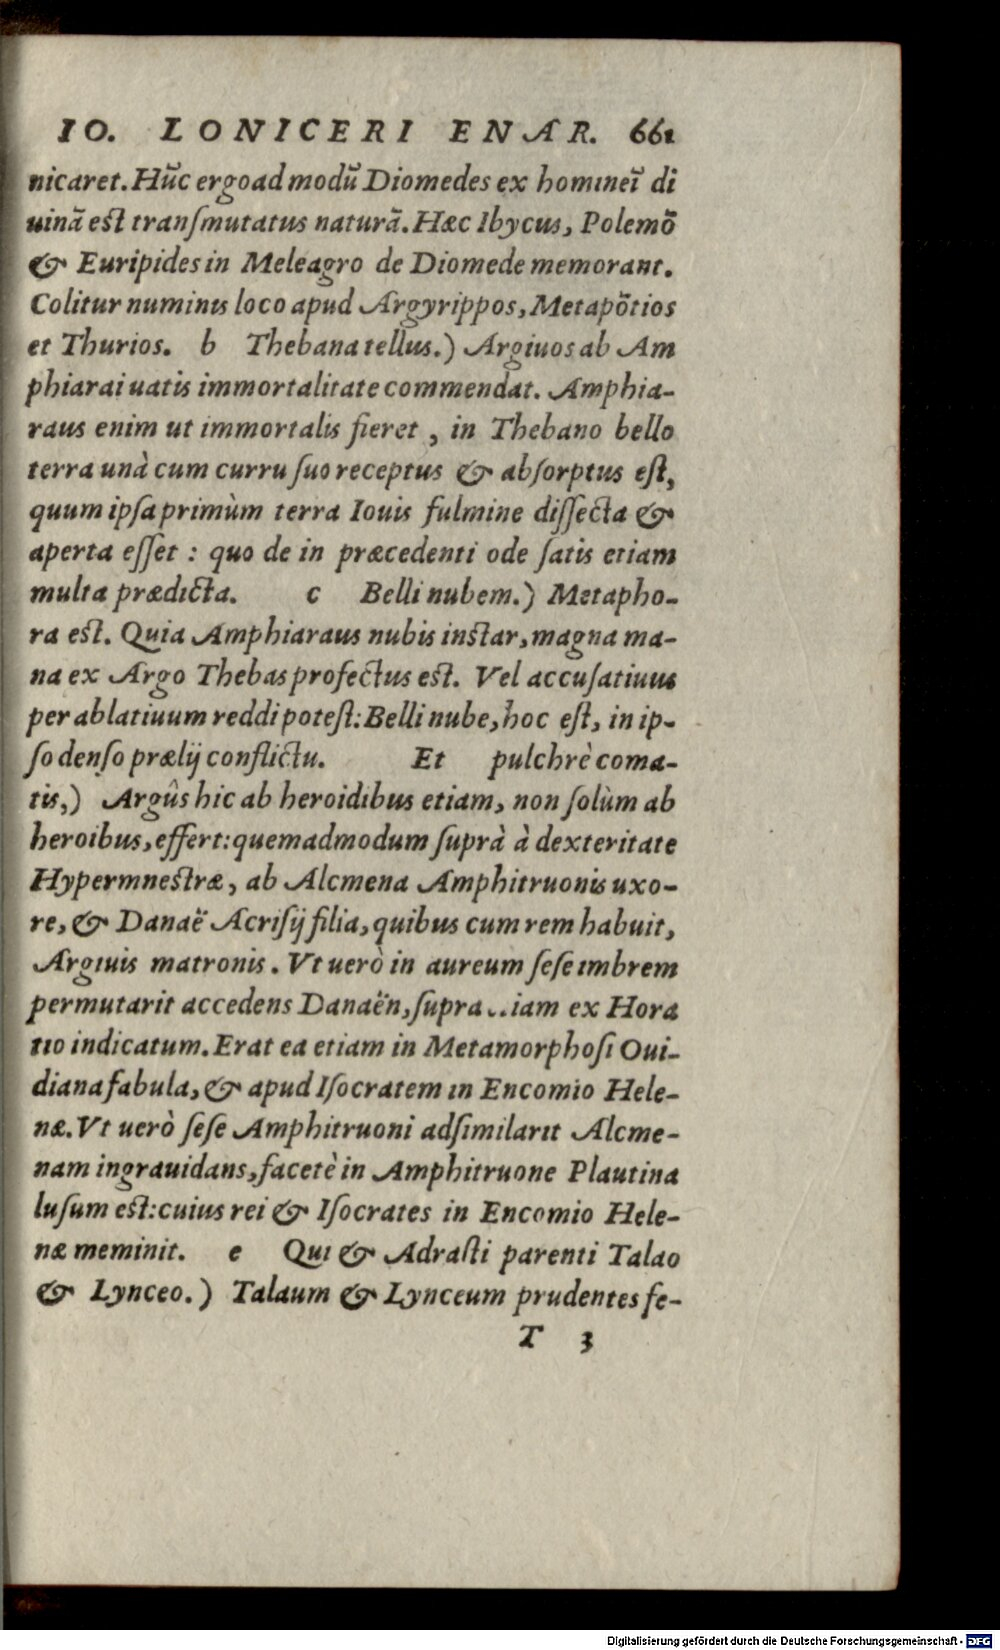 IO. LONICERI ENAR. 661
nicaret. Hũc ergo ad modũ Diomedes ex homine ĩ di
uinã est transmutatus naturã. Hæc Ibycus, Polemõ
& Euripides in Meleagro de Diomede memorant.
Colitur numinis loco apud Argyrippos, Metapõtios
et Thurios. b Thebana tellus.) Argiuos ab Am
phiarai uatis immortalitate commendat. Amphia-
raus enim ut immortalis fieret, in Thebano bello
terra unà cum curru suo receptus & absorptus est,
quum ipsa primùm terra Iouis fulmine dissecta &
aperta esset: quo de in præcedenti ode satis etiam
multa prædicta. c Belli nubem.) Metapho-
ra est. Quia Amphiaraus nubis instar, magna ma-
na ex Argo Thebas profectus est. Vel accusatiuus
per ablatiuum reddi potest: Belli nube, hoc est, in ip-
so denso prælij conflictu. Et pulchrè coma-
tis,) Argûs hic ab heroidibus etiam, non solùm ab
heroibus, effert: quemadmodum suprà à dexteritate
Hypermnestræ, ab Alcmena Amphitruonis uxo-
re, & Danaë Acrisij filia, quibus cum rem habuit,
Argiuis matronis. Vt uerò in aureum sese imbrem
permutarit accedens Danaën, supra ..iam ex Hora
tio indicatum. Erat ea etiam in Metamorphosi Oui-
diana fabula, & apud Isocratem in Encomio Hele-
næ. Vt uerò sese Amphitruoni adsimilarit Alcme-
nam ingrauidans, facetè in Amphitruone Plautina
lusum est: cuius rei & Isocrates in Encomio Hele-
næ meminit. e Qui & Adrasti parenti Talao
& Lynceo.) Talaum & Lynceum prudentes fe-
T 3
Digitalisierung gefördert durch die Deutsche Forschungsgemeinschaft - DFG